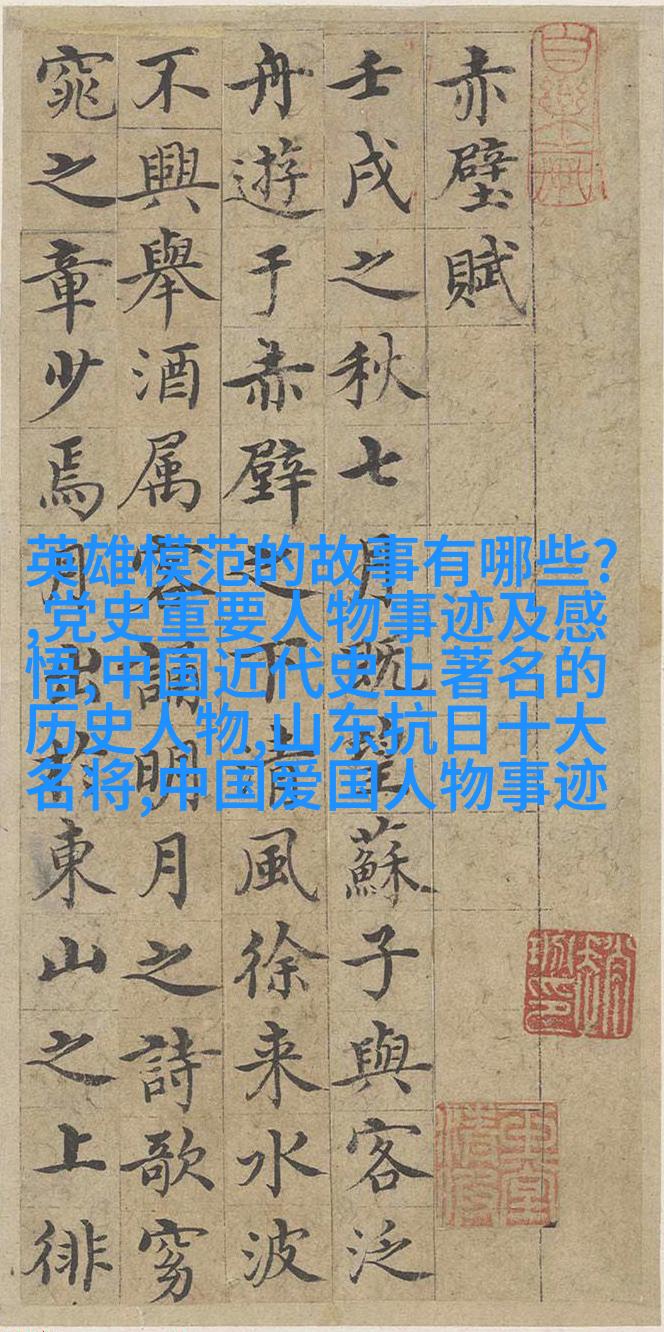 赤壁賦
壬戌之秋七月既望蘇子與客泛
舟遊于赤壁之下清風徐来水波
不興舉酒属客誦明月之詩歌窈
窕之章少焉月出於東山之上徘
英雄模范的故事有哪些?
,党史重要人物事迹及感
悟,中国近代史上著名的
历史人物,山东抗日十大
名将,中国爱国人物事迹